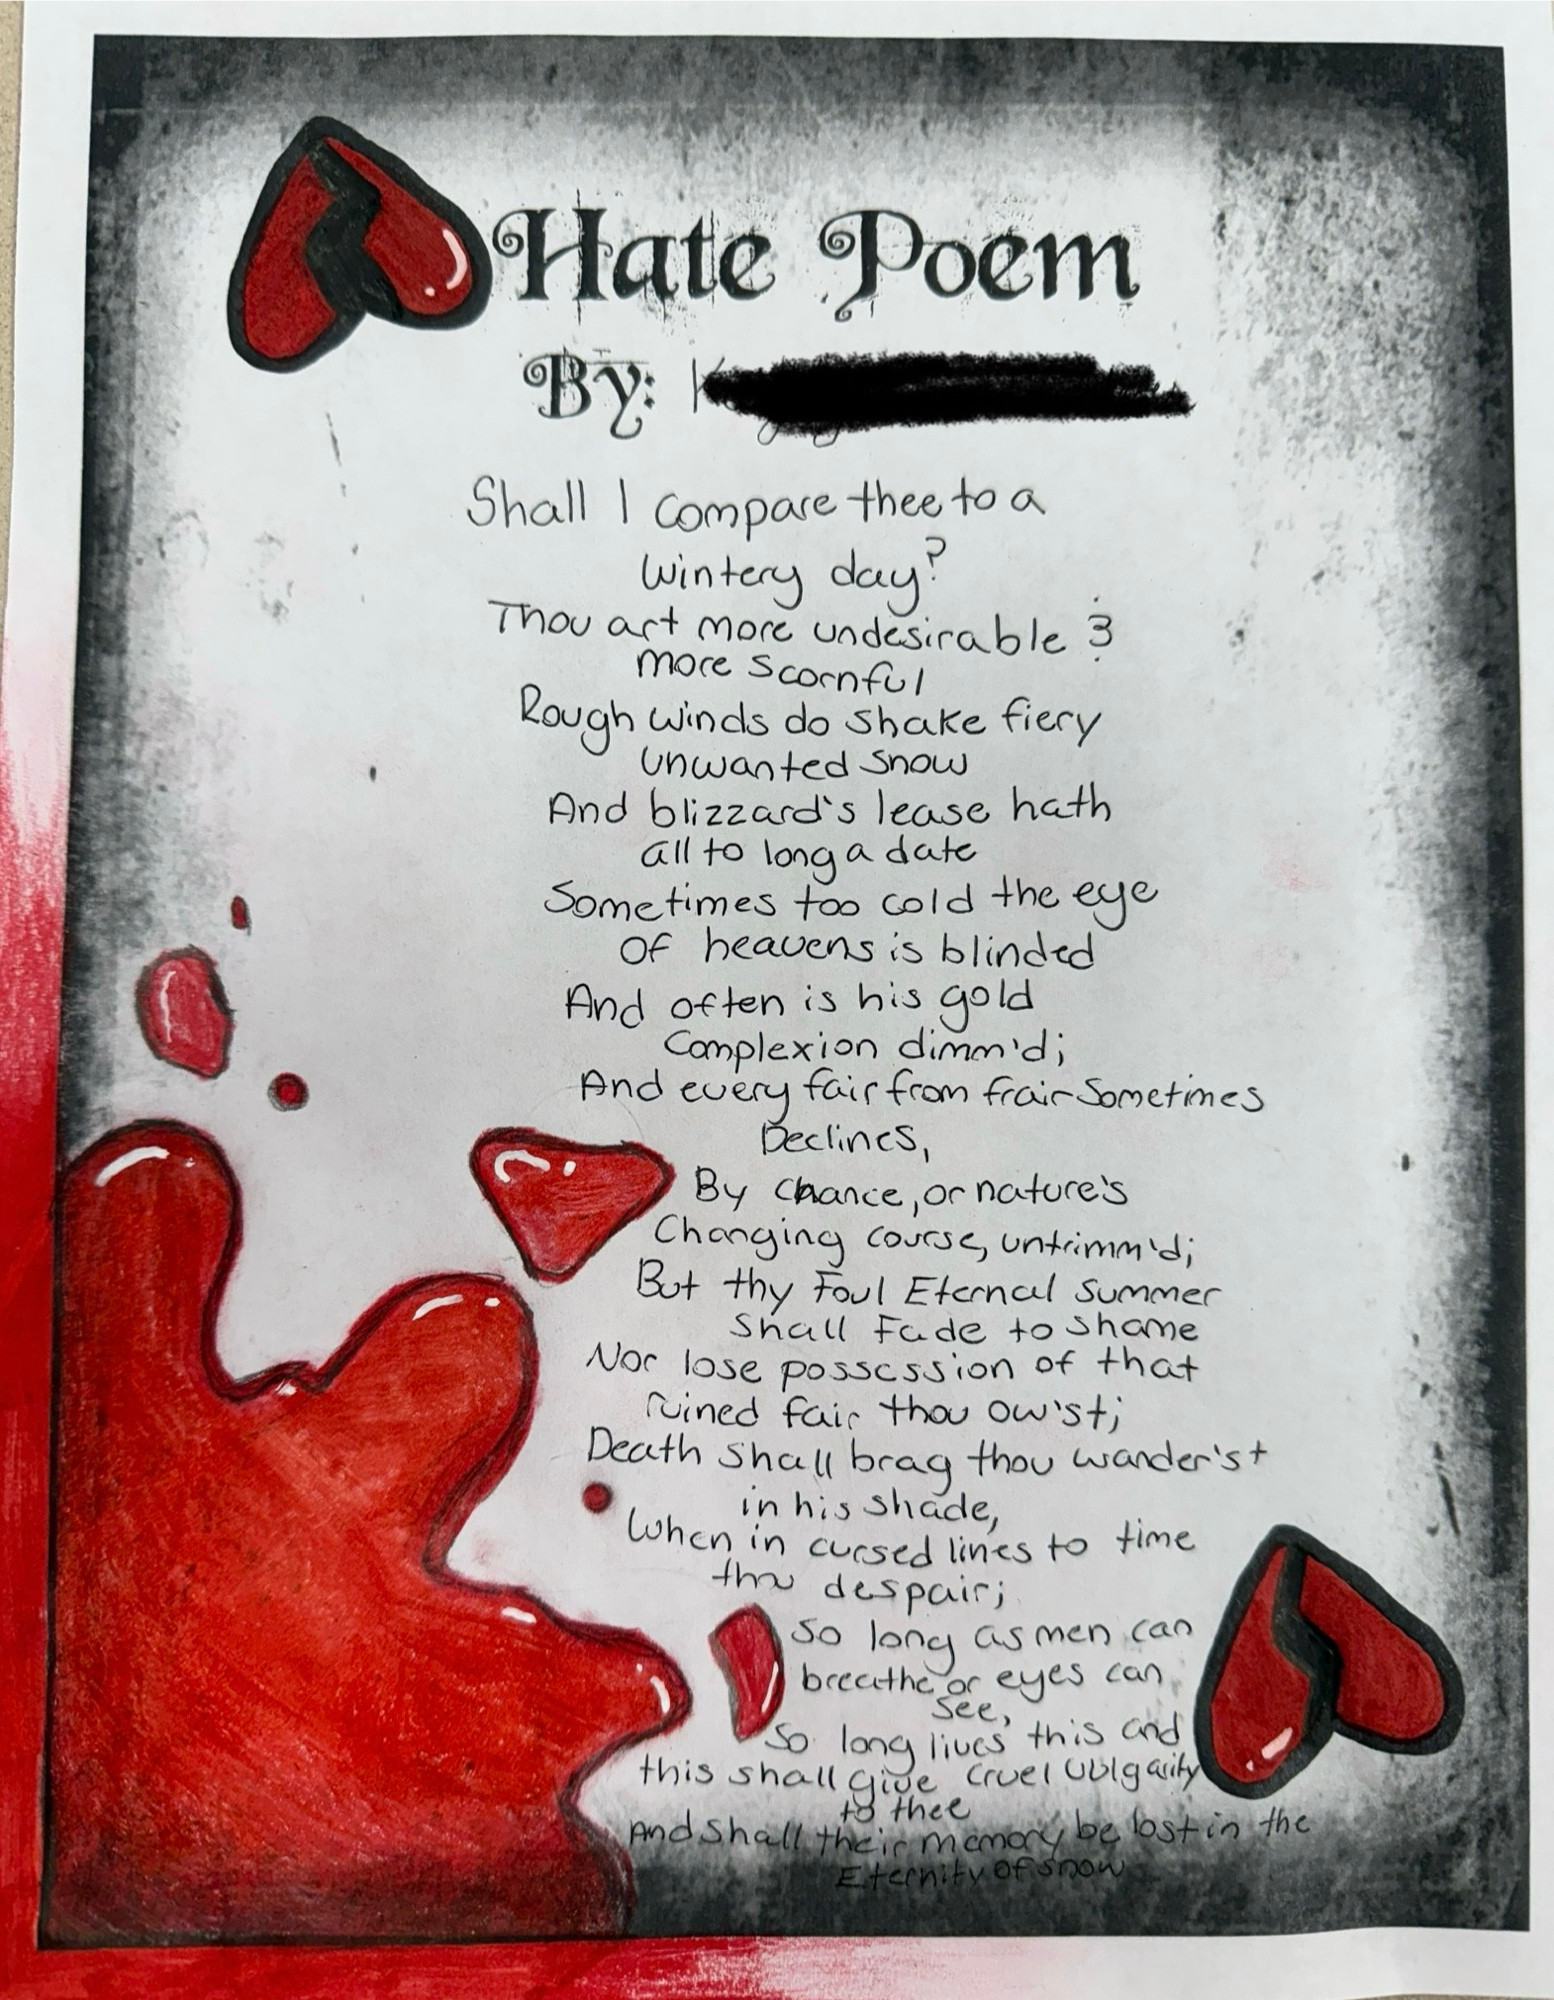 Hate Poem
By: K
Shall I compare thee to a
wintery day?
Thou art more undesirable &
more scornful
Rough winds do shake fiery
unwanted snow
And blizzard's lease hath
all to long a date
Sometimes too cold the eye
of heavens is blinded
And often is his gold
Complexion dimm'd;
And every fair from frair sometimes
Declines,
By chance, or nature's
Changing course, untrimm'd;
But thy Foul Eternal Summer
shall Fade to shame
Nor lose possession of that
ruined fair thou ow'st;
Death shall brag thou wander'st
in his shade,
When in cursed lines to time
thou despair;
So long as men can
breathe or eyes can
see,
So long lives this and
this shall give cruel vulgarity
to thee
And shall their memory be lost in the
Eternity of snow